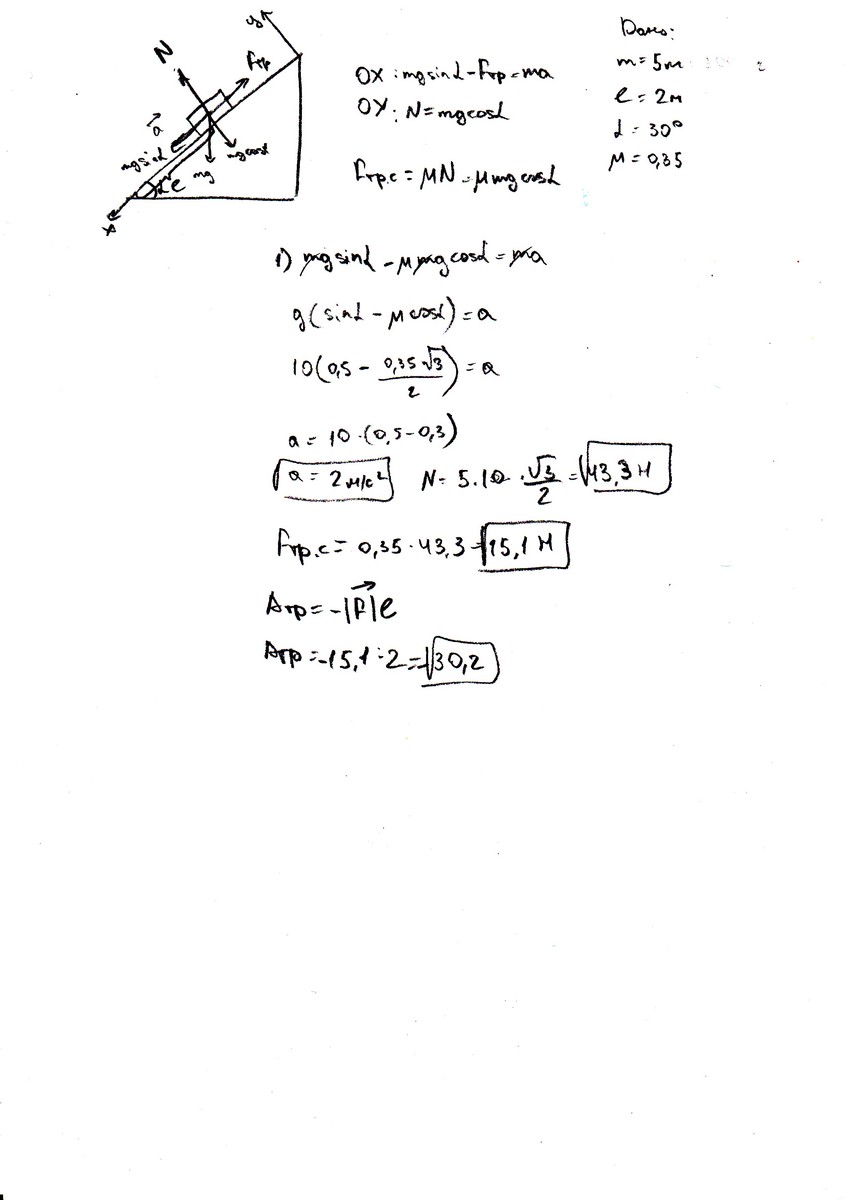 Дано:
m = 5м
l = 2м
α = 30°
μ = 0,35
y
N
Fтр
a
mg sinα
mg cosα
mg
α
l
x
OX: mg sinα - Fтр = ma
OY: N = mg cosα
Fтр.с = μN = μmg cosα
1) mg sinα - μmg cosα = ma
g(sinα - μ cosα) = a
10(0,5 - 0,35√3/2) = a
a = 10·(0,5-0,3)
a = 2м/с² N = 5·10·√3/2 = 43,3 Н
Fтр.с = 0,35·43,3 = 15,1 Н
Aтр = -|F|l
Aтр = -15,1·2 = -30,2